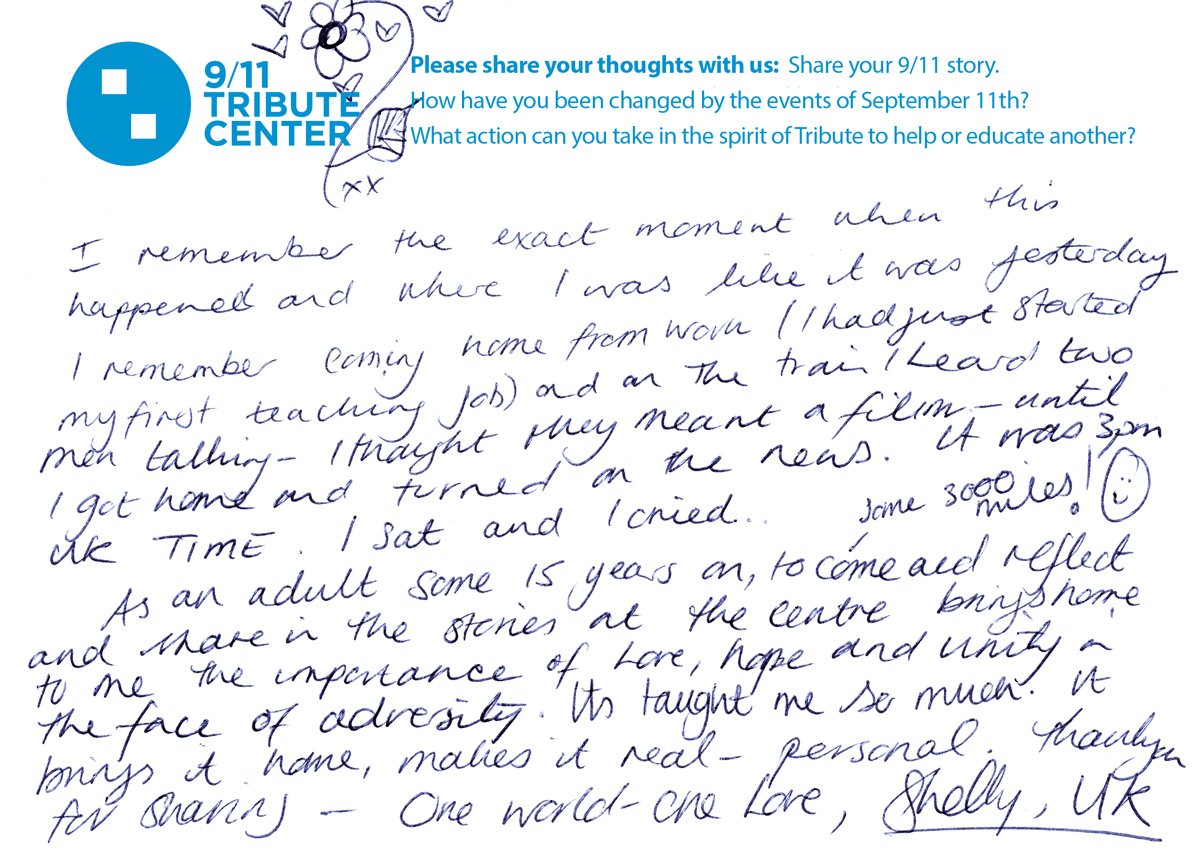 9/11
TRIBUTE
CENTER
Please share your thoughts with us: Share your 9/11 story.
How have you been changed by the events of September 11th?
What action can you take in the spirit of Tribute to help or educate another?
xx
I remember the exact moment when this
happened and where I was like it was yesterday
I remember coming home from work (I had just started
my first teaching job) and on the train I heard two
men talking - I thought they meant a film - until
I got home and turned on the news. It was 3pm
UK TIME. I sat and I cried...
some 3000 miles!
As an adult some 15 years on, to come and reflect
and share in the stories at the centre brings home
to me the importance of love, hope and unity in
the face of adversity. Its taught me so much. It
brings it home, makes it real - personal. Thankyou
for sharing - One world - one love, Shelly, UK